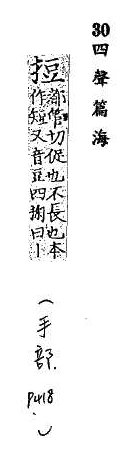 30 四聲篇海
𢭃
都管切促也不長也本
作短又音豆四掬曰丨
(手部 P418)